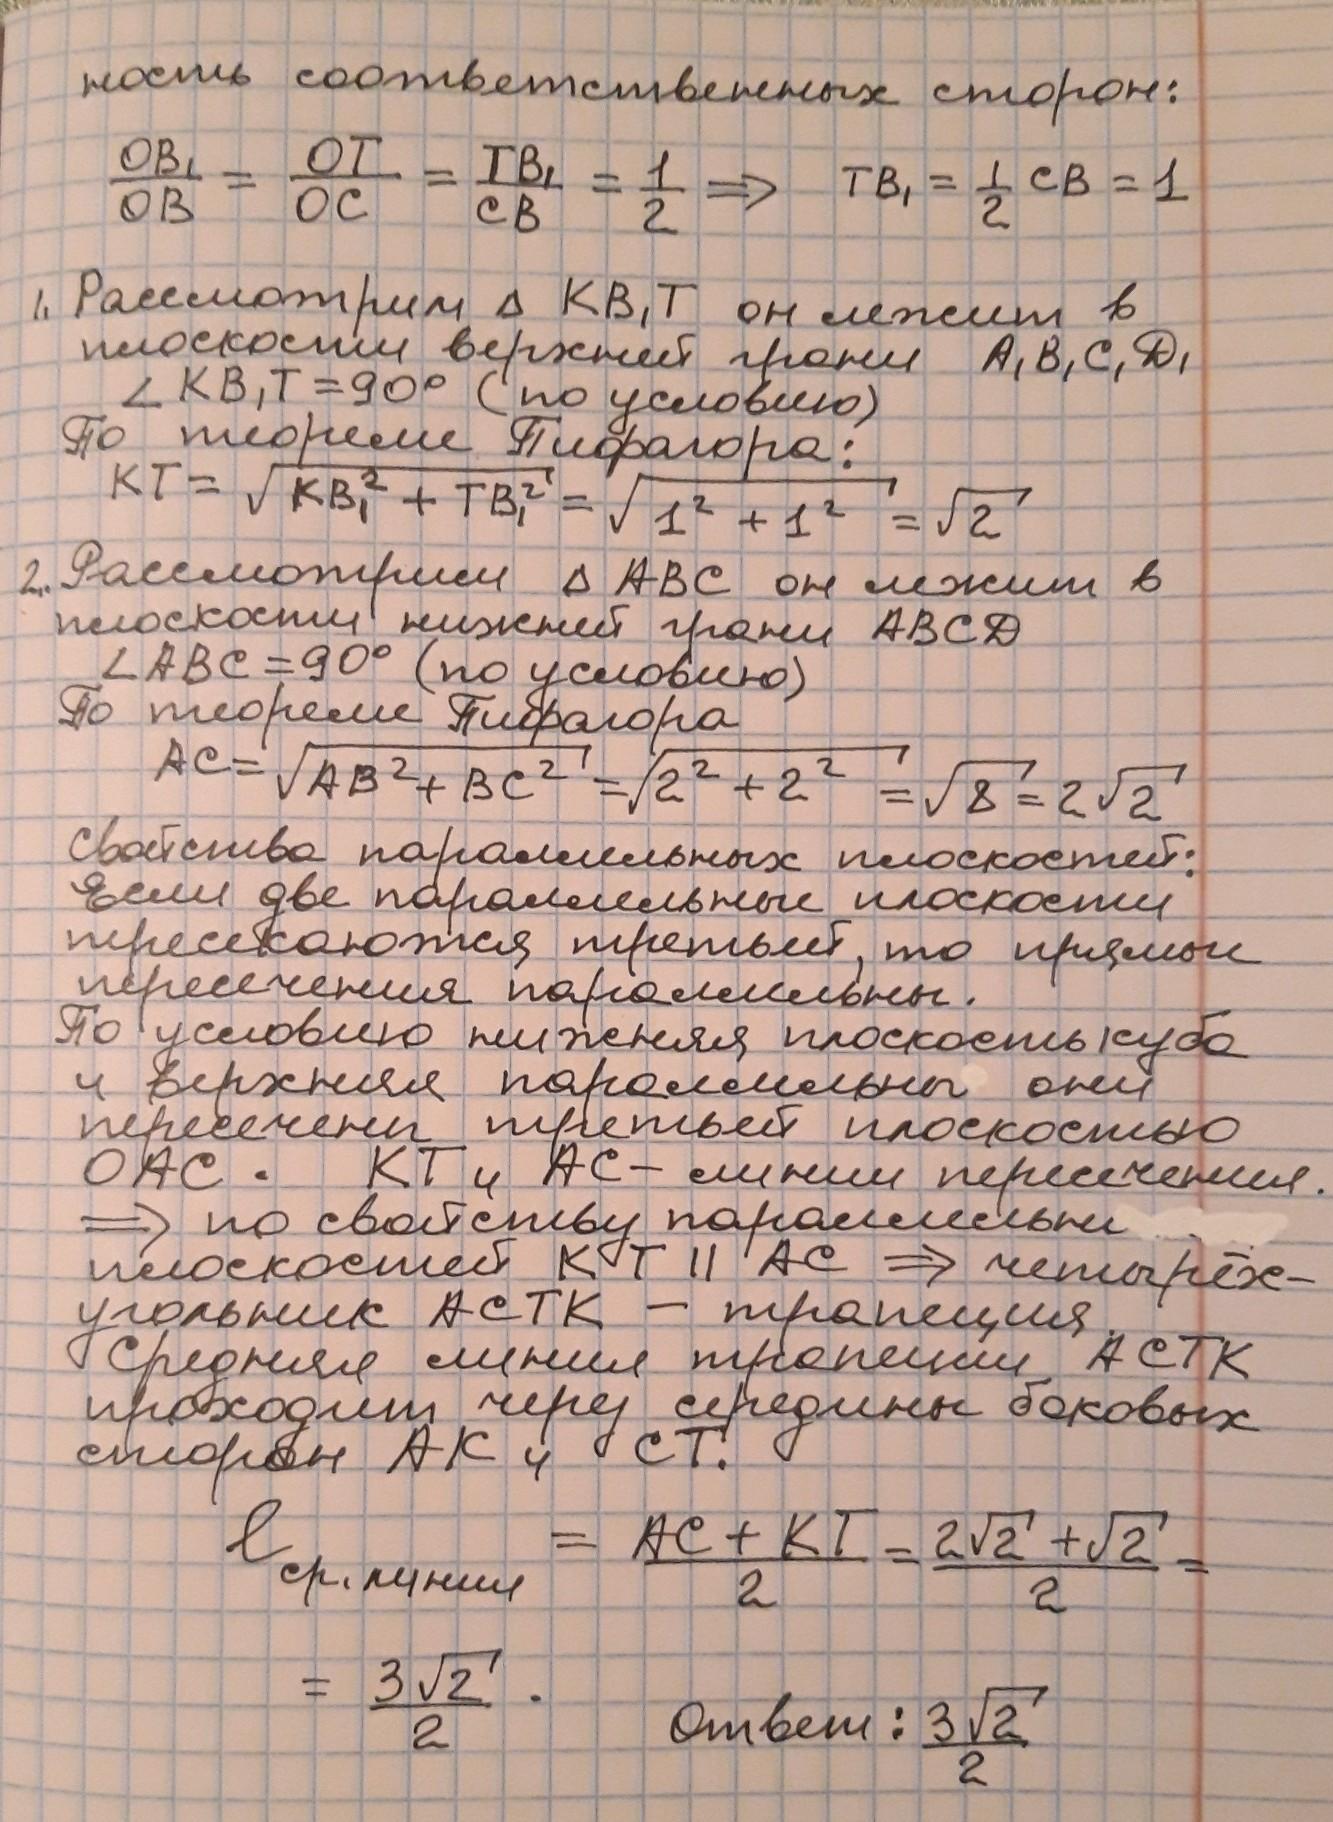 ность соответственных сторон:
OB₁/OB = OT/OC = TB₁/CB = 1/2 => TB₁ = 1/2 CB = 1
1. Рассмотрим Δ KB₁T он лежит в
плоскости верхней грани A₁B₁C₁D₁
∠KB₁T = 90° (по условию)
По теореме Пифагора:
KT = √(KB₁² + TB₁²) = √(1² + 1²) = √2
2. Рассмотрим Δ ABC он лежит в
плоскости нижней грани ABCD
∠ABC = 90° (по условию)
По теореме Пифагора
AC = √(AB² + BC²) = √(2² + 2²) = √8 = 2√2
Свойства параллельных плоскостей:
Если две параллельные плоскости
пересекаются третьей, то прямые
пересечения параллельны.
По условию нижняя плоскость куба
и верхняя параллельны они
пересечены третьей плоскостью
OAC. KT и AC – линии пересечения.
=> по свойству параллельн
плоскостей KT || AC => четырёх-
угольник ACTK – трапеция.
Средняя линия трапеции ACTK
проходит через середины боковых
сторон AK и CT.
l ср. линии = (AC + KT)/2 = (2√2 + √2)/2 =
= 3√2/2. Ответ: 3√2/2